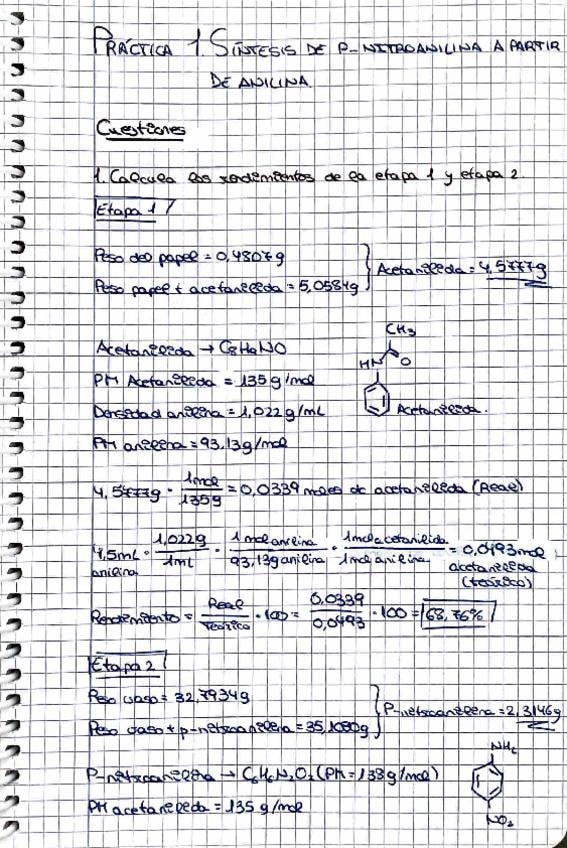 PRÁCTICA 1. SÍNTESIS DE P-NITROANILINA A PARTIR
DE ANILINA.
Cuestiones
1. Calcula los rendimientos de la etapa 1 y etapa 2.
Etapa 1
Peso del papel = 0,4807g
Peso papel + acetanilida = 5,0584g
Acetanilida = 4,5777g
Acetanilida → C8H9NO
PM Acetanilida = 135 g/mol
Densidad anilina = 1,022 g/mL
PM anilina = 93,13 g/mol
CH3
HN O
Acetanilida.
4,5777g · 1mol/135g = 0,0339 moles de acetanilida (Real)
4,5mL anilina · 1,022g/1mL · 1mol anilina/93,13g anilina · 1mol acetanilida/1mol anilina = 0,0493 mol acetanilida (teórico)
Rendimiento = Real/Teórico · 100 = 0,0339/0,0493 · 100 = 68,76%
Etapa 2
Peso vaso = 32,7934g
Peso vaso + p-nitroanilina = 35,1080g
P-nitroanilina = 2,3146g
P-nitroanilina → C6H6N2O2 (PM = 138 g/mol)
PM acetanilida = 135 g/mol
NH2
NO2